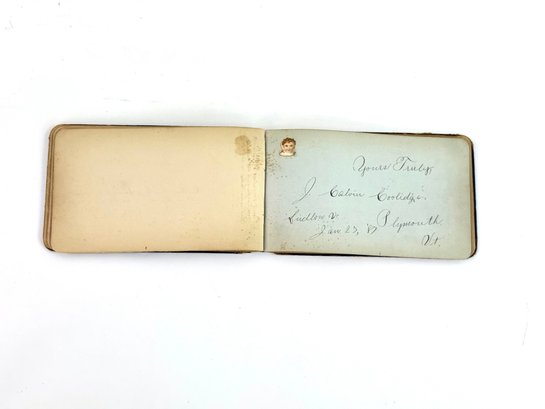 Yours Truly,
J Calvin Coolidge.
Ludlow V. Plymouth
Jan 23, '87 Vt.